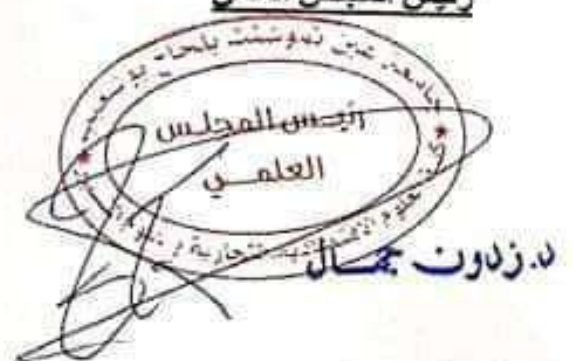 رئيس المجلس العلمي
جامعة عين تموشنت بلحاج بوشعيب
رئيس المجلس
العلمي
كلية العلوم الاقتصادية والتجارية وعلوم
د. زدون جمال